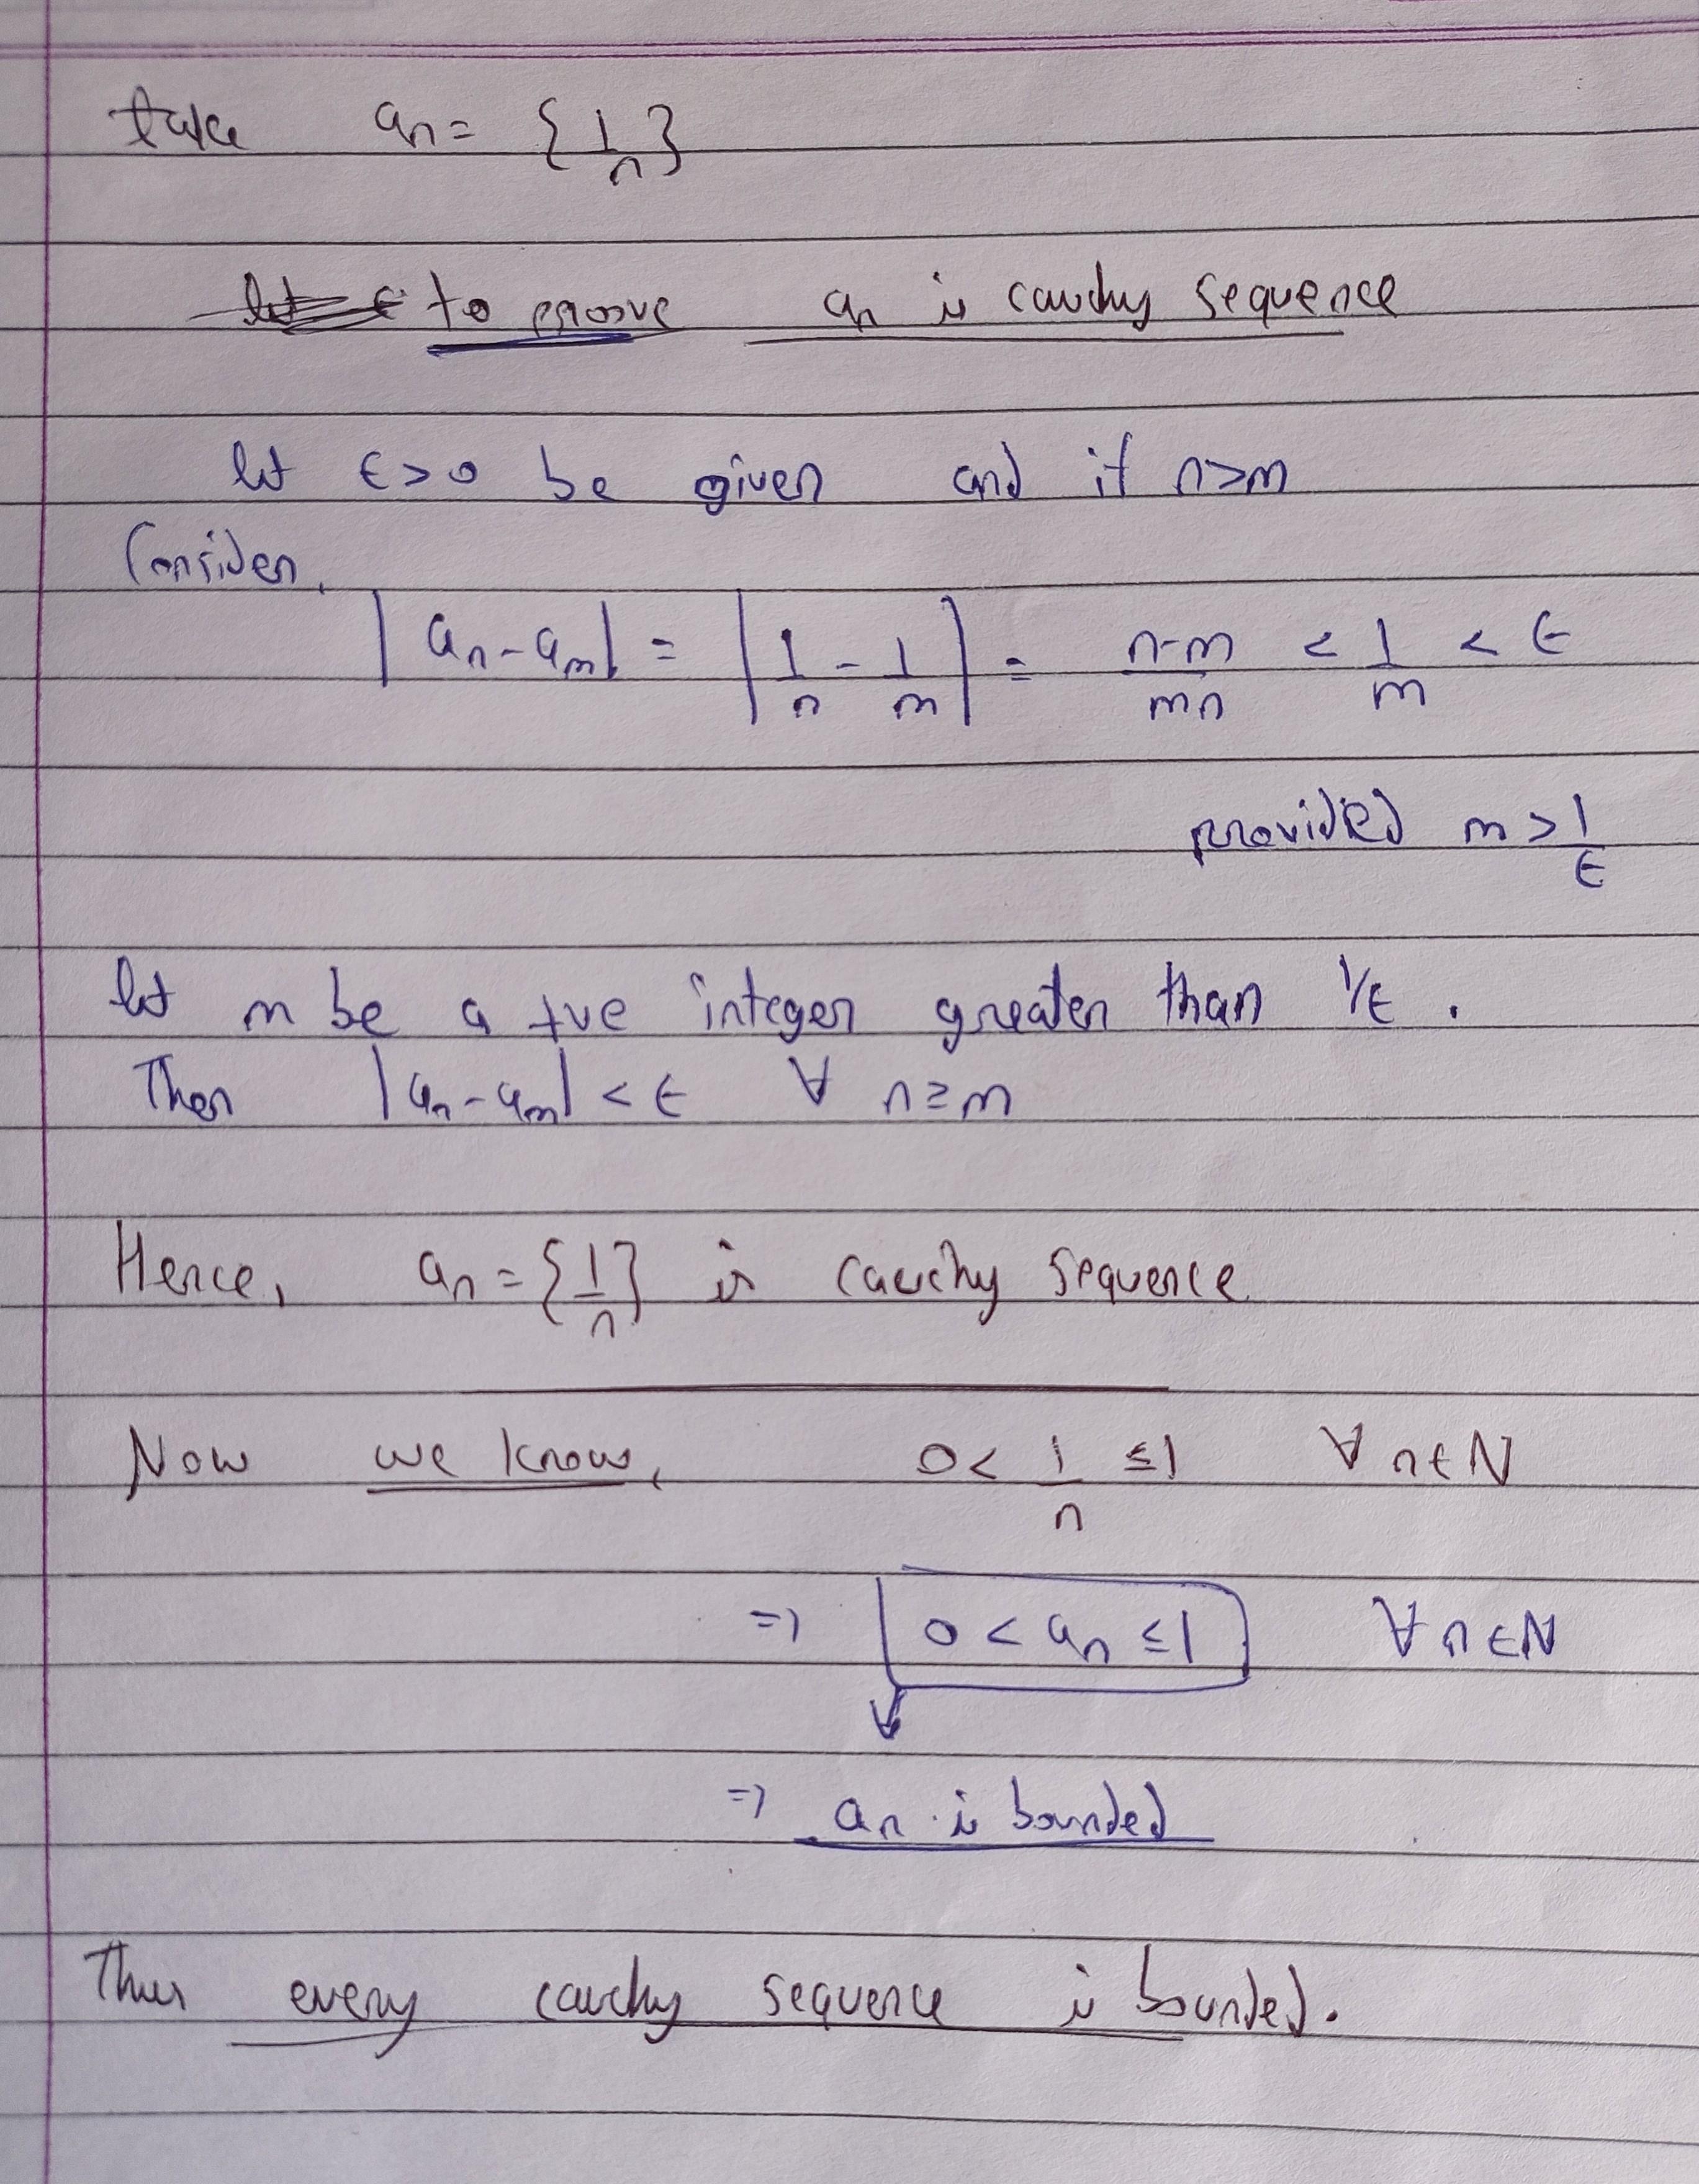 take a_n = {1/n}
to proove a_n is cauchy sequence
let ϵ>0 be given and if n>m
Consider,
|a_n - a_m| = |1/n - 1/m| = (n-m)/mn < 1/m < ϵ
provided m > 1/ϵ
let m be a +ve integer greater than 1/ϵ .
Then |a_n - a_m| < ϵ ∀ n≥m
Hence, a_n = {1/n} is cauchy sequence
Now we know, 0 < 1/n ≤ 1 ∀ n∈N
=> 0 < a_n ≤ 1 ∀ n∈N
=> a_n is bounded
Thus every cauchy sequence is bounded.